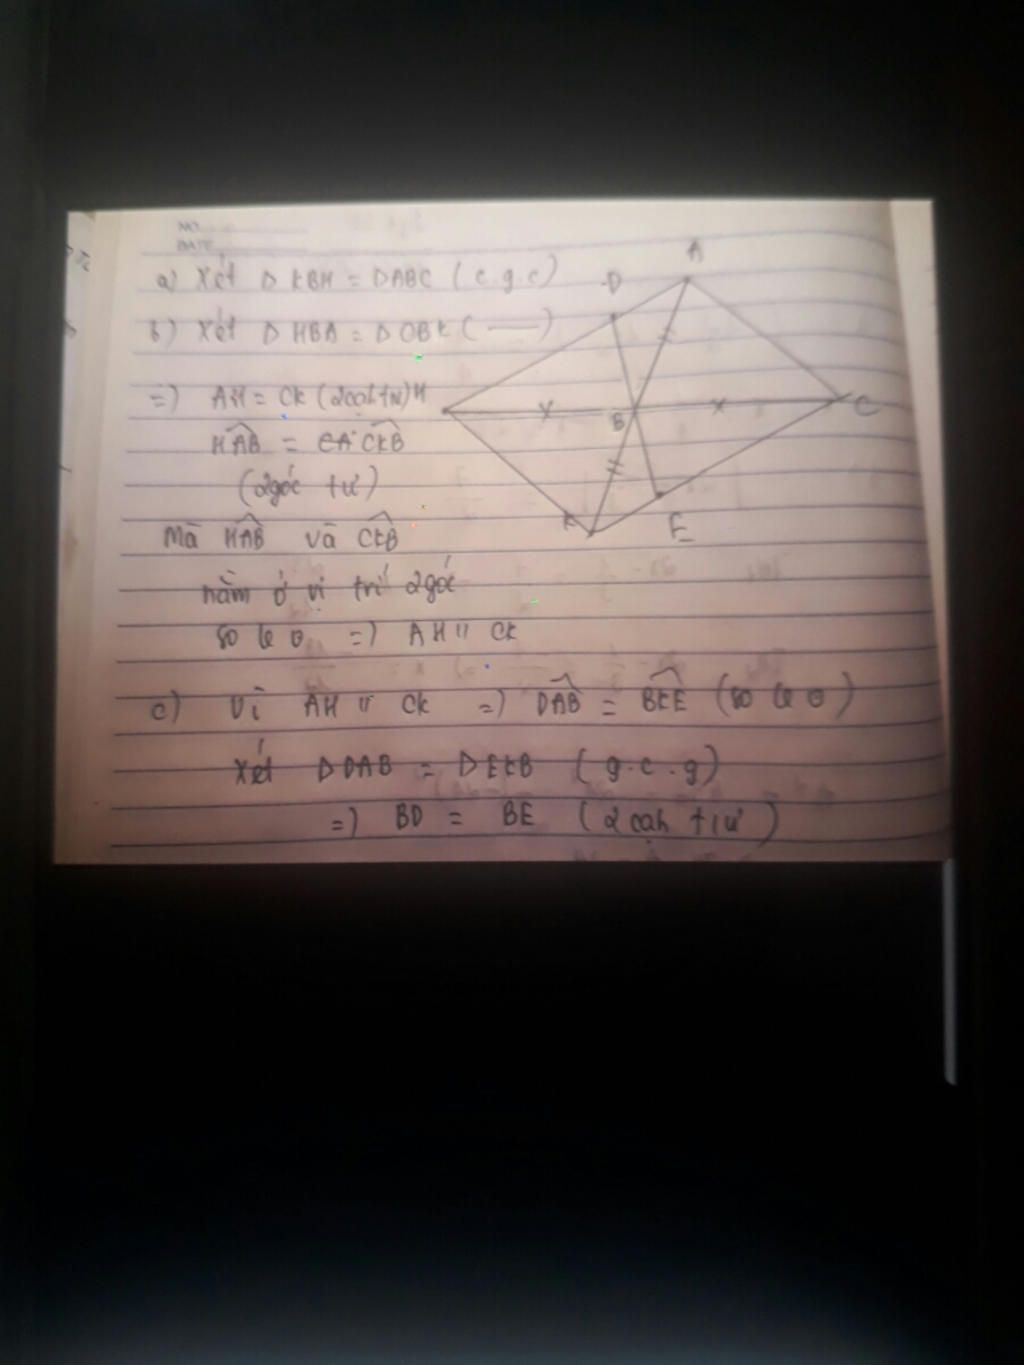 NO.
DATE
a) Xét Δ KBH = ΔABC ( c.g.c )
b) Xét Δ HBA = Δ CBK ( — )
=) AH = CK (2cạh tư)
HAB = CA CKB
(2góc tư)
Mà HAB và CKB
nằm ở vị trí 2góc
so le =) AH // CK
c) Vì AH // CK =) DAB = BKE (so le )
Xét Δ DAB = Δ EKB ( g.c.g )
=) BD = BE ( 2 cạh tư )
A
D
H
B
C
K
E